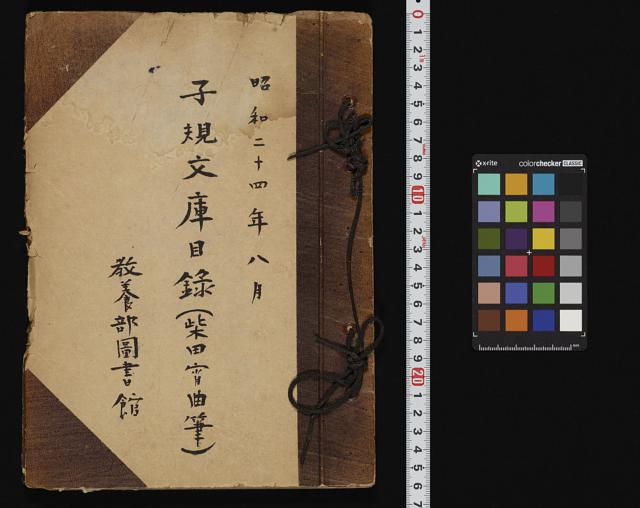 昭和二十四年八月
子規文庫目録（柴田宵曲筆）
教養部圖書館
0 1 2 3 4 5 6 7 8 9 10 1 2 3 4 5 6 7 8 9 20 1 2 3 4 5 6 7
x-rite colorchecker CLASSIC